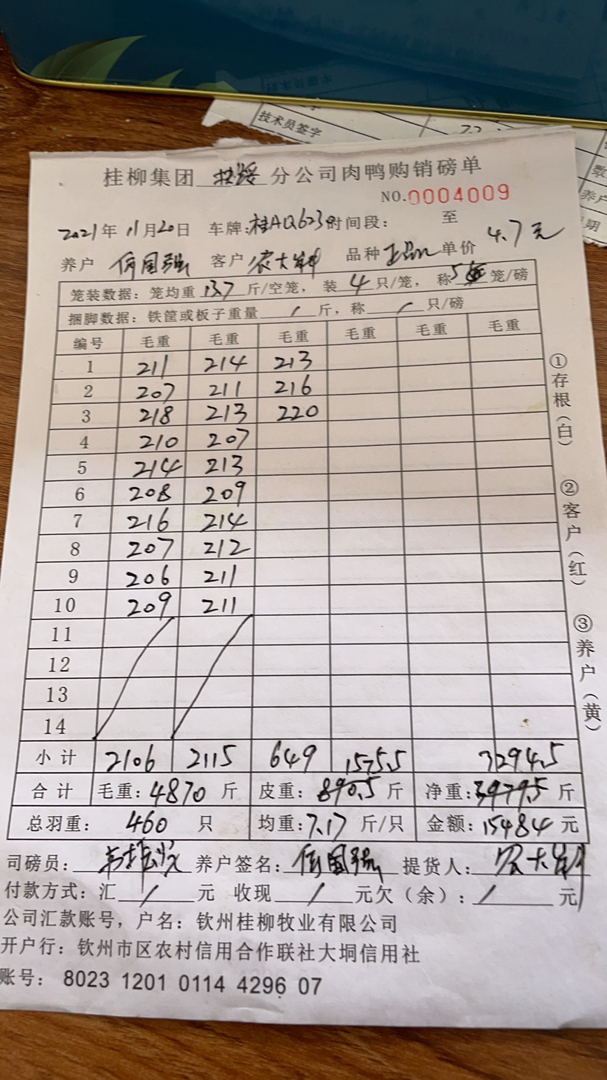 技术员签字
桂柳集团 扶绥 分公司肉鸭购销磅单
NO.0004009
2021年 11月20日 车牌:桂AQ623 时间段: 至
养户 何国强 客户 农大 品种 单价 4.7元
笼装数据: 笼均重 13.7 斤/空笼, 装 4 只/笼, 称 5 笼/磅
捆脚数据: 铁筐或板子重量 / 斤, 称 / 只/磅
编号 毛重 毛重 毛重 毛重 毛重 毛重
1 211 214 213
2 207 211 216
3 218 213 220
4 210 207
5 214 213
6 208 209
7 216 214
8 207 212
9 206 211
10 209 211
11
12
13
14
小计 2106 2115 649 1575.5 3294.5
合计 毛重: 4870 斤 皮重: 890.5 斤 净重: 3979.5 斤
总羽重: 460 只 均重: 7.17 斤/只 金额: 15484 元
司磅员: 养户签名: 何国强 提货人: 农大
付款方式: 汇 / 元 收现 / 元欠(余): / 元
公司汇款账号, 户名: 钦州桂柳牧业有限公司
开户行: 钦州市区农村信用合作联社大垌信用社
账号: 8023 1201 0114 4296 07
①存根(白)
②客户(红)
③养户(黄)